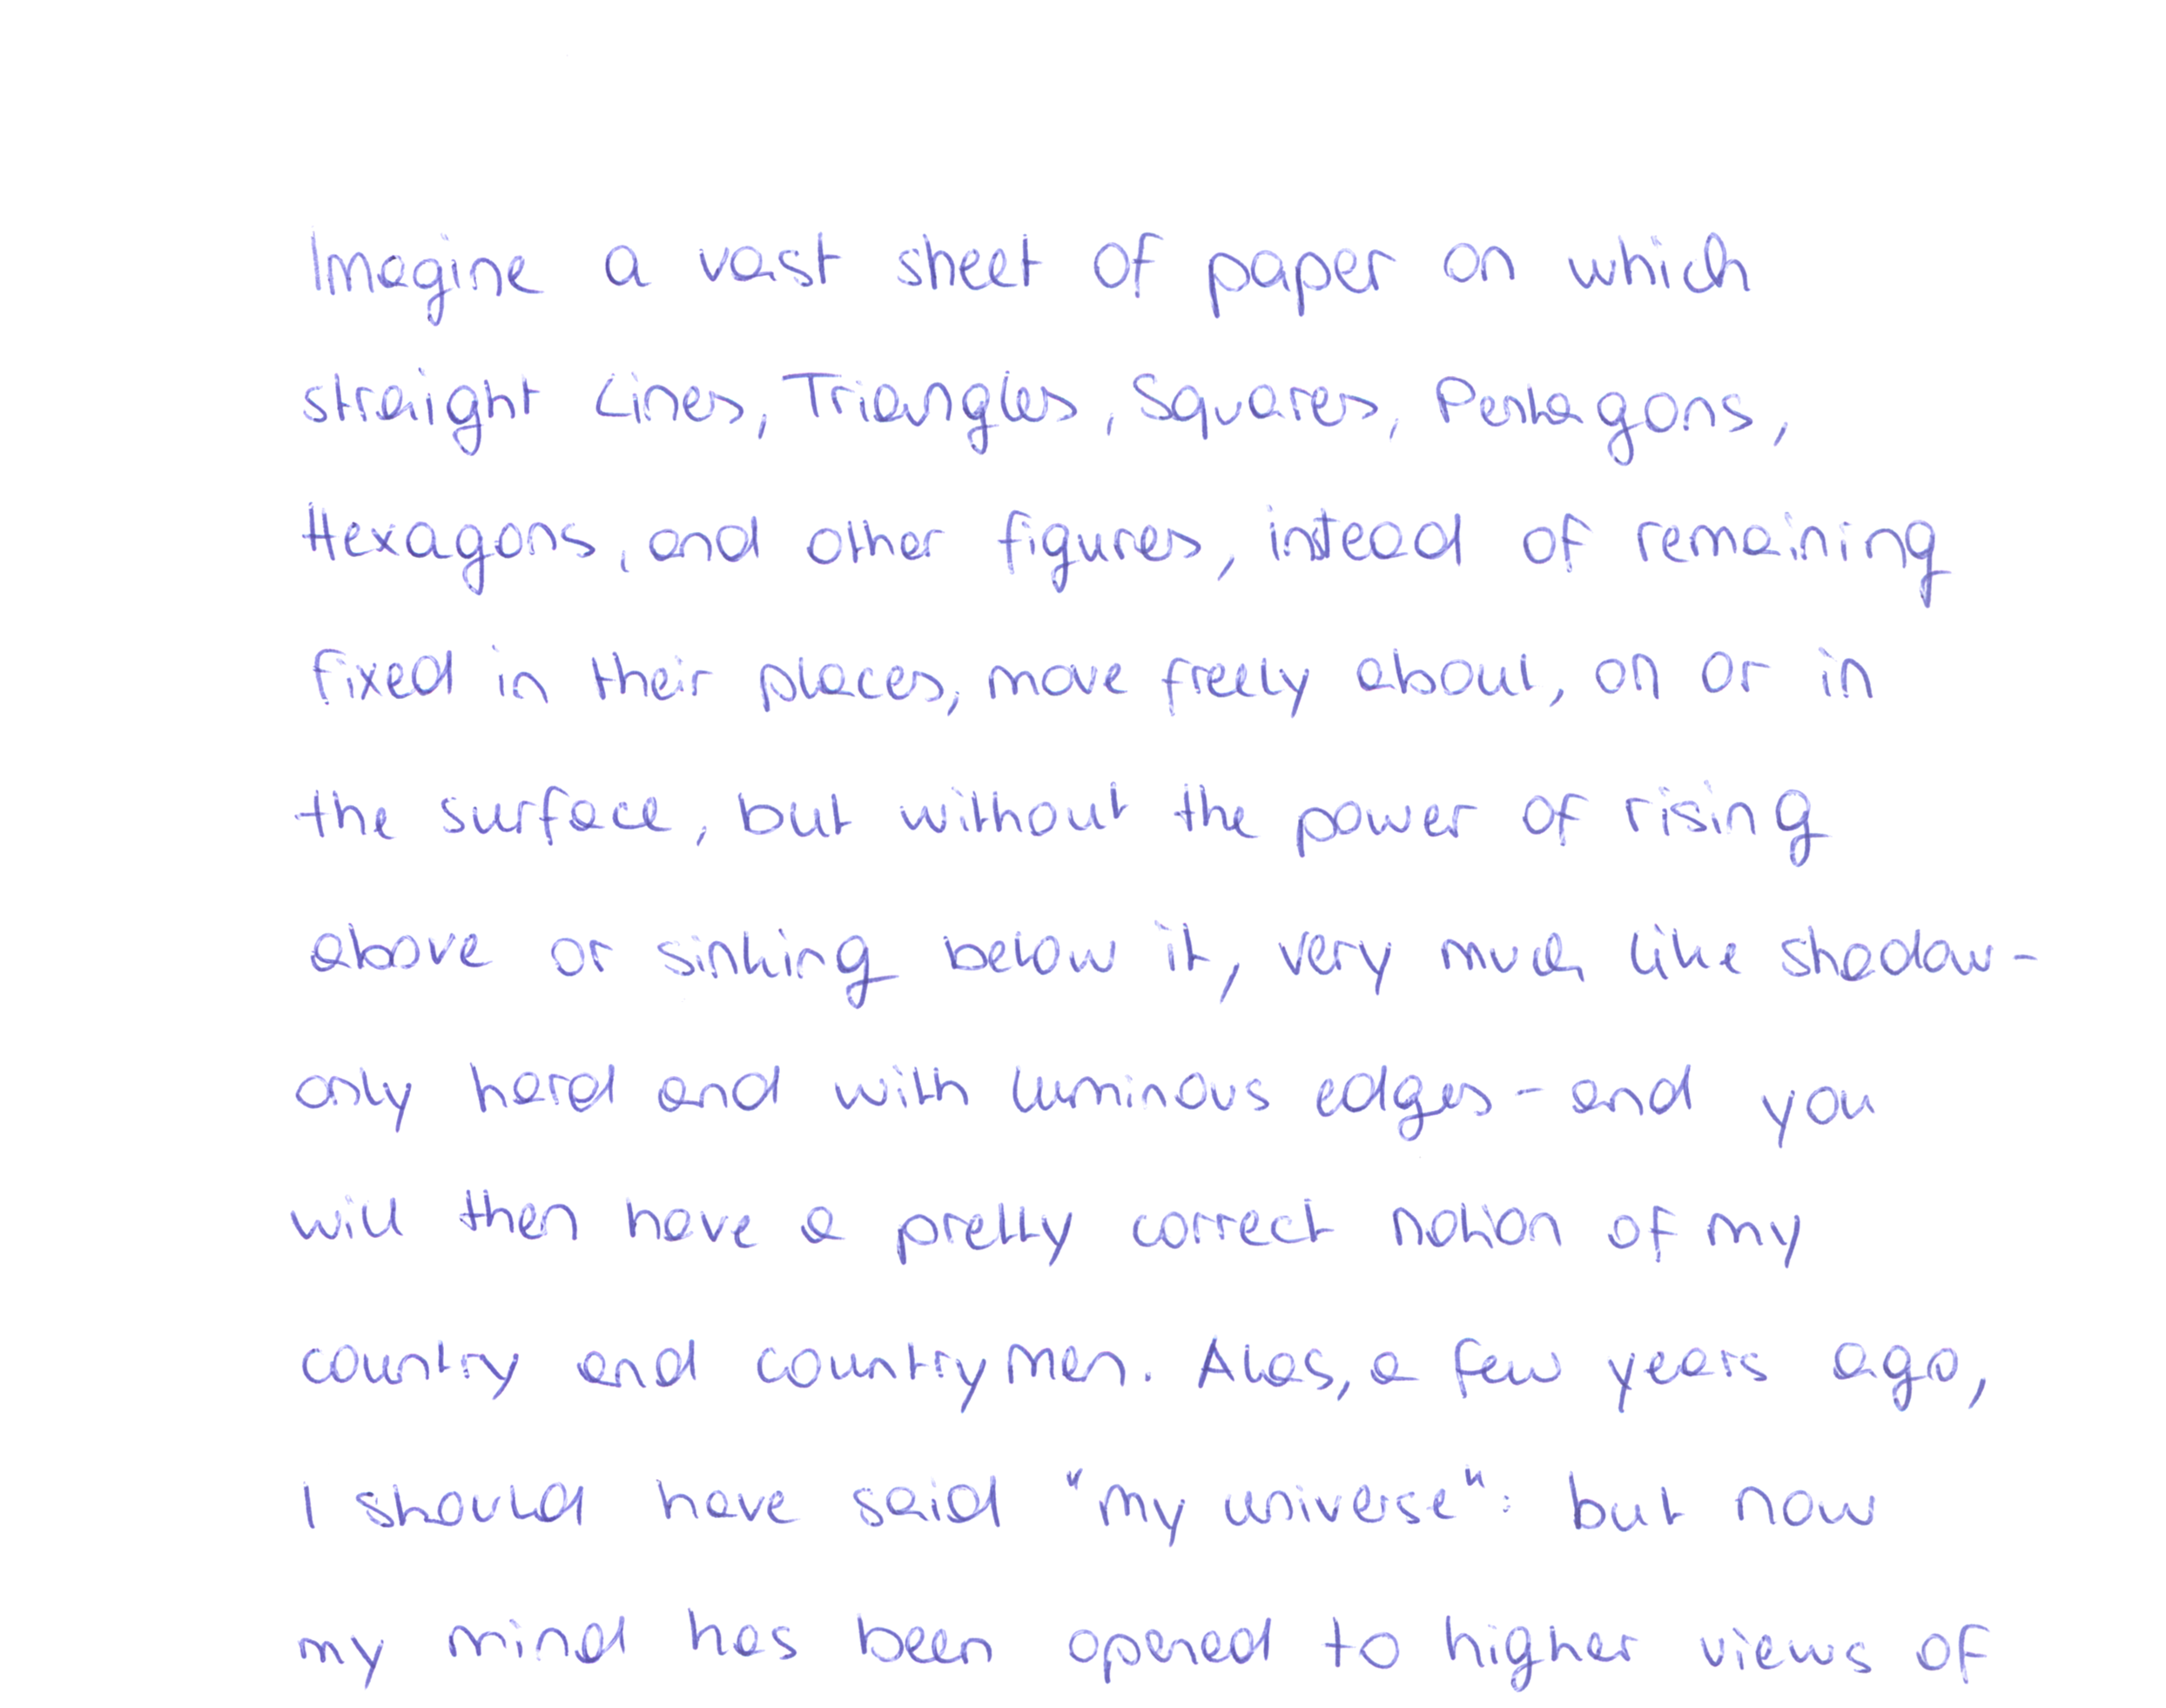 Imagine a vast sheet of paper on which
straight Lines, Triangles, Squares, Pentagons,
Hexagons, and other figures, instead of remaining
fixed in their places, move freely about, on or in
the surface, but without the power of rising
above or sinking below it, very much like shadow-
only hard and with luminous edges - and you
will then have a pretty correct notion of my
country and countrymen. Alas, a few years ago,
I should have said "my universe": but now
my mind has been opened to higher views of